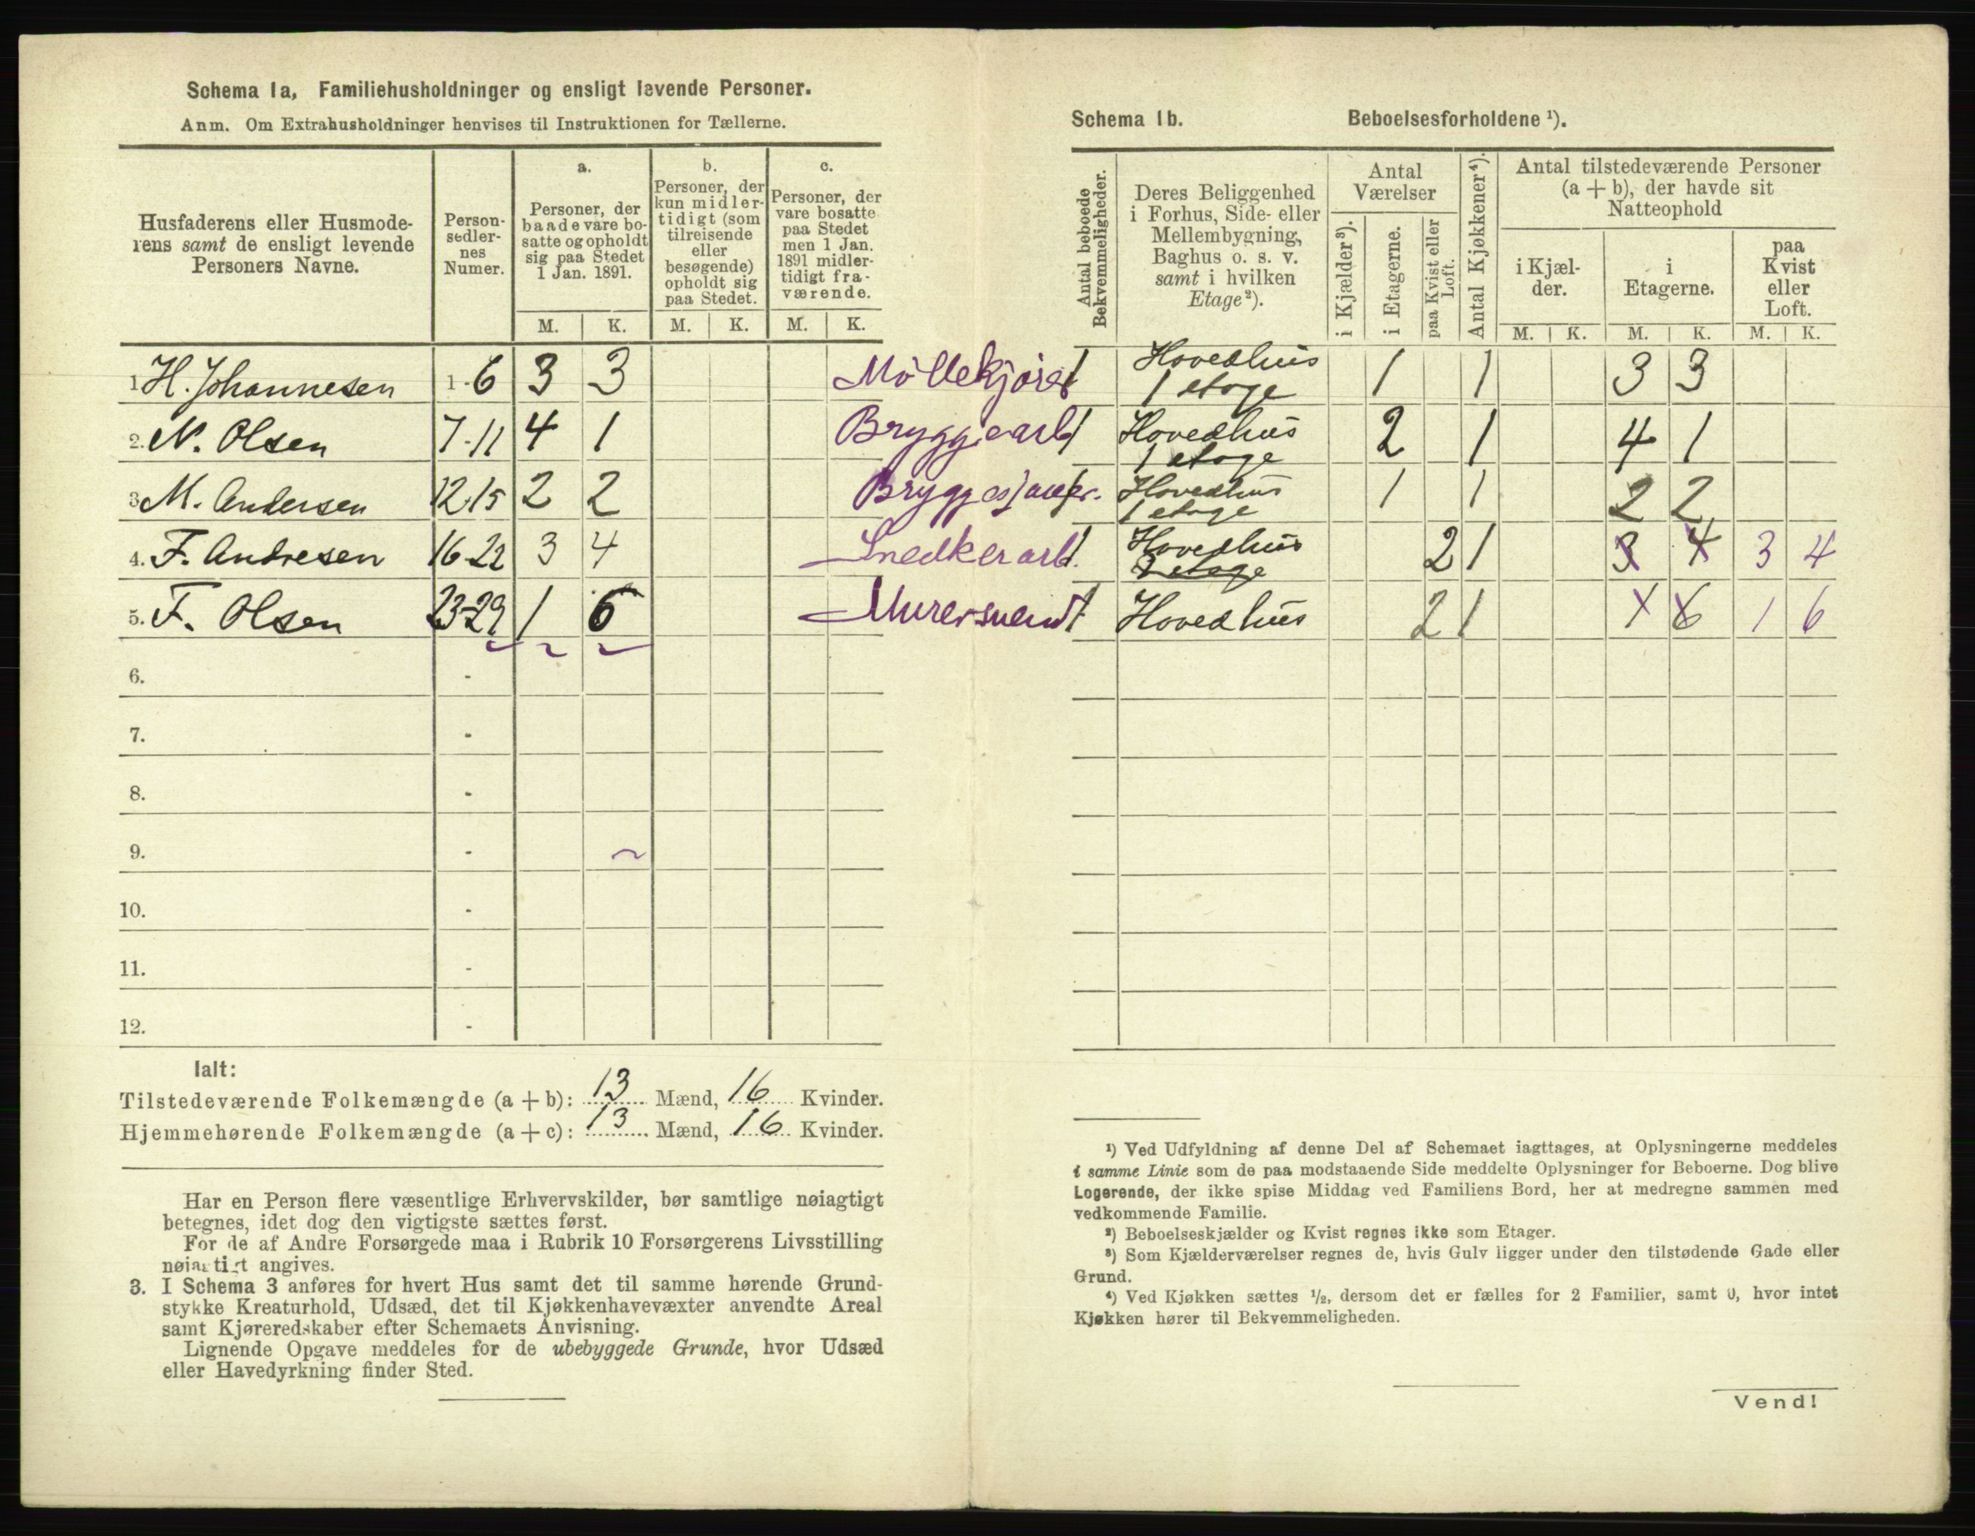 Schema 1a, Familiehusholdninger og ensligt levende Personer.
Anm. Om Extrahusholdninger henvises til Instruktionen for Tællerne.
Husfaderens eller Husmode-
rens samt de ensligt levende
Personers Navne.
Person-
sedler-
nes
Numer.
a.
Personer, der
baade vare bo-
satte og opholdt
sig paa Stedet
1 Jan. 1891.
b.
Personer, der
kun midler-
tidigt (som
tilreisende
eller
besøgende)
opholdt sig
paa Stedet.
c.
Personer, der
vare bosatte
paa Stedet
men 1 Jan.
1891 midler-
tidigt fra-
værende.
M. K. M. K. M. K.
1 H. Johannesen 1-6 3 3 Møllekjører
2. N. Olsen 7-11 4 1 Bryggearb
3 M. Andersen 12-15 2 2 Bryggesjauer.
4. F. Andresen 16-22 3 4 Snedkerarb.
5. F. Olsen 23-29 1 6 Murersvend
6. -
7. -
8. -
9. -
10. -
11. -
12. -
Ialt:
Tilstedeværende Folkemængde (a + b): 13 Mænd, 16 Kvinder.
Hjemmehørende Folkemængde (a + c): 13 Mænd, 16 Kvinder.
Har en Person flere væsentlige Erhvervskilder, bør samtlige nøiagtigt
betegnes, idet dog den vigtigste sættes først.
For de af Andre Forsørgede maa i Rubrik 10 Forsørgerens Livsstilling
nøiagtigt angives.
3. I Schema 3 anføres for hvert Hus samt det til samme hørende Grund-
stykke Kreaturhold, Udsæd, det til Kjøkkenhavevæxter anvendte Areal
samt Kjøreredskaber efter Schemaets Anvisning.
Lignende Opgave meddeles for de ubebyggede Grunde, hvor Udsæd
eller Havedyrkning finder Sted.
Schema 1b. Beboelsesforholdene ¹).
Antal beboede
Bekvemmeligheder.
Deres Beliggenhed
i Forhus, Side- eller
Mellembygning,
Baghus o. s. v.
samt i hvilken
Etage ²).
Antal
Værelser
i Kjælder ³).
i Etagerne.
paa Kvist eller
Loft.
Antal Kjøkkener ⁴).
Antal tilstedeværende Personer
(a + b), der havde sit
Natteophold
i Kjæl-
der.
i
Etagerne.
paa
Kvist
eller
Loft.
M. K. M. K. M. K.
1 Hovedhus 1 1 3 3
1 etage
1 Hovedhus 2 1 4 1
1 etage
1 Hovedhus 1 1 2 2
1 etage
1 Hovedhus 2 1 3 4 3 4
2 etage
1 Hovedhus 2 1 1 6 1 6
¹) Ved Udfyldning af denne Del af Schemaet iagttages, at Oplysningerne meddeles
i samme Linie som de paa modstaaende Side meddelte Oplysninger for Beboerne. Dog blive
Logerende, der ikke spise Middag ved Familiens Bord, her at medregne sammen med
vedkommende Familie.
²) Beboelseskjælder og Kvist regnes ikke som Etager.
³) Som Kjælderværelser regnes de, hvis Gulv ligger under den tilstødende Gade eller
Grund.
⁴) Ved Kjøkken sættes ½, dersom det er fælles for 2 Familier, samt 0, hvor intet
Kjøkken hører til Bekvemmeligheden.
Vend!